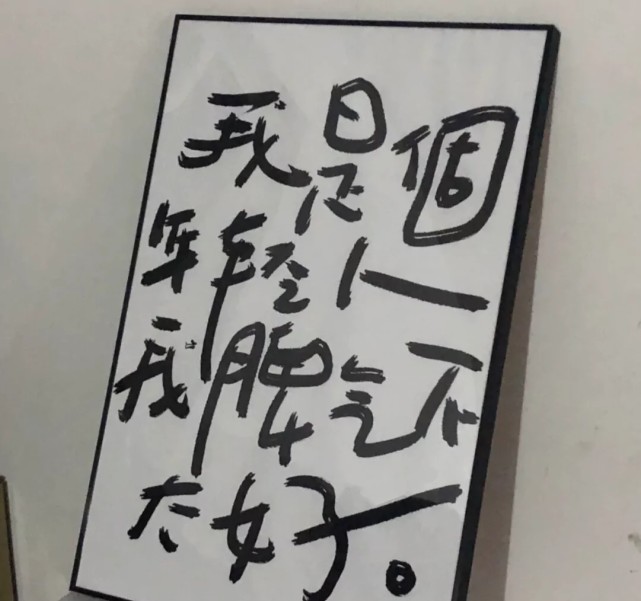 我是個
年轻人
我脾氣不
太好。